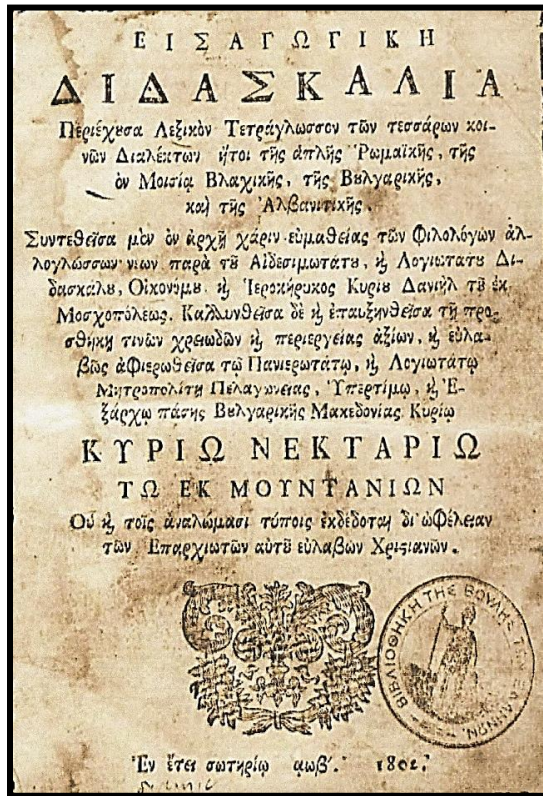 ΕΙΣΑΓΩΓΙΚΗ
ΔΙΔΑΣΚΑΛΙΑ
Περιέχουσα Λεξικὸν Τετράγλωσσον τῶν τεσσάρων κοι-
νῶν Διαλέκτων ἤτοι τῆς ἁπλῆς Ῥωμαϊκῆς, τῆς
ἐν Μοισίᾳ Βλαχικῆς, τῆς Βουλγαρικῆς,
καὶ τῆς Ἀλβανιτικῆς.
Συντεθεῖσα μὲν ἐν ἀρχῇ χάριν εὐμαθείας τῶν Φιλολόγων ἀλ-
λογλώσσων νέων παρὰ τοῦ Αἰδεσιμωτάτου, καὶ Λογιωτάτου Δι-
δασκάλου, Οἰκονόμου, καὶ Ἱεροκήρυκος Κυρίου Δανιὴλ τοῦ ἐκ
Μοσχοπόλεως. Καλλυνθεῖσα δὲ καὶ ἐπαυξηνθεῖσα τῇ προ-
σθήκῃ τινῶν χρειωδῶν καὶ περιεργείας ἀξίων, καὶ εὐλα-
βῶς ἀφιερωθεῖσα τῷ Πανιερωτάτῳ, καὶ Λογιωτάτῳ
Μητροπολίτῃ Πελαγωνείας, Ὑπερτίμῳ, καὶ Ἐ-
ξάρχῳ πάσης Βουλγαρικῆς Μακεδονίας Κυρίῳ
ΚΥΡΙΩ ΝΕΚΤΑΡΙΩ
ΤΩ ΕΚ ΜΟΥΝΤΑΝΙΩΝ
Οὗ καὶ τοῖς ἀναλώμασι τύποις ἐκδέδοται δι' ὠφέλειαν
τῶν Ἐπαρχιωτῶν αὐτοῦ εὐλαβῶν Χριστιανῶν.
ΒΙΒΛΙΟΘΗΚΗ ΤΗΣ ΒΟΥΛΗΣ ΤΩΝ ΕΛΛΗΝΩΝ
Ἐν ἔτει σωτηρίῳ αωβʹ. 1802.